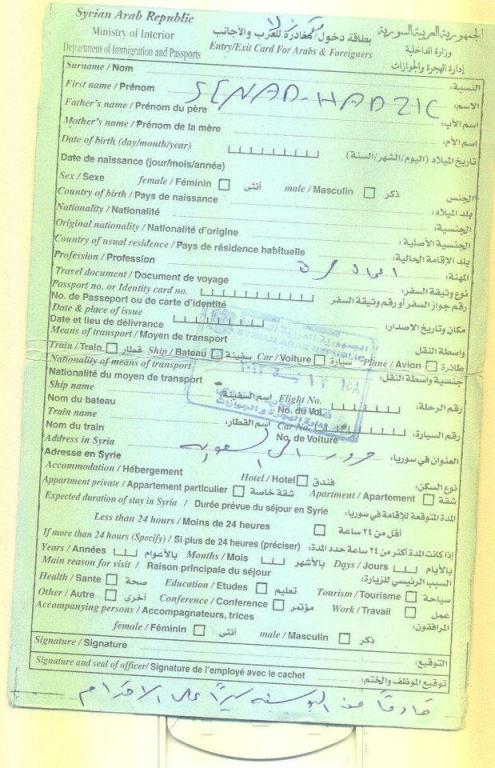 Syrian Arab Republic
Ministry of Interior
Department of Immigration and Passports
بطاقة دخول / مغادرة للعرب والأجانب
Entry/Exit Card For Arabs & Foreigners
الجمهورية العربية السورية
وزارة الداخلية
إدارة الهجرة والجوازات
Surname / Nom النسبة:
First name / Prénom SENAD-HADZIC الاسم:
Father's name / Prénom du père اسم الأب:
Mother's name / Prénom de la mère اسم الأم:
Date of birth (day/month/year) تاريخ الميلاد (اليوم/الشهر/السنة)
Date de naissance (jour/mois/année)
Sex / Sexe female / Féminin أنثى male / Masculin ذكر الجنس
Country of birth / Pays de naissance بلد الميلاد:
Nationality / Nationalité الجنسية:
Original nationality / Nationalité d'origine الجنسية الأصلية:
Country of usual residence / Pays de résidence habituelle بلد الإقامة الحالية:
Profession / Profession اعمال حرة المهنة:
Travel document / Document de voyage نوع وثيقة السفر:
Passport no. or Identity card no. رقم جواز السفر أو رقم وثيقة السفر
No. de Passeport ou de carte d'identité
Date & place of issue مكان وتاريخ الاصدار:
Date et lieu de délivrance
Means of transport / Moyen de transport واسطة النقل
Train / Train قطار Ship / Bateau سفينة Car / Voiture سيارة Plane / Avion طائرة
Nationality of means of transport جنسية واسطة النقل:
Nationalité du moyen de transport
Ship name اسم السفينة: Flight No. رقم الرحلة:
Nom du bateau No. du Vol
Train name اسم القطار: Car No. رقم السيارة:
Nom du train No. de Voiture
Address in Syria مرور الى السعودية العنوان في سوريا:
Adresse en Syrie
Accommodation / Hébergement Hotel / Hotel فندق نوع السكن:
Appartment private / Appartement particulier شقة خاصة Apartment / Appartement شقة
Expected duration of stay in Syria / Durée prévue du séjour en Syrie المدة المتوقعة للإقامة في سوريا:
Less than 24 hours / Moins de 24 heures أقل من ٢٤ ساعة
If more than 24 hours (Specify) / Si plus de 24 heures (préciser) إذا كانت المدة أكثر من ٢٤ ساعة حدد المدة:
Years / Années بالأعوام Months / Mois بالأشهر Days / Jours بالأيام
Main reason for visit / Raison principale du séjour السبب الرئيسي للزيارة:
Health / Sante صحة Education / Etudes تعليم Tourism / Tourisme سياحة
Other / Autre أخرى Conference / Conférence مؤتمر Work / Travail عمل
Accompanying persons / Accompagnateurs, trices المرافقون:
female / Féminin أنثى male / Masculin ذكر
Signature / Signature التوقيع:
Signature and seal of officer/ Signature de l'employé avec le cachet توقيع الموظف والختم:
قادماً من البوسنه سيراً على الاقدام